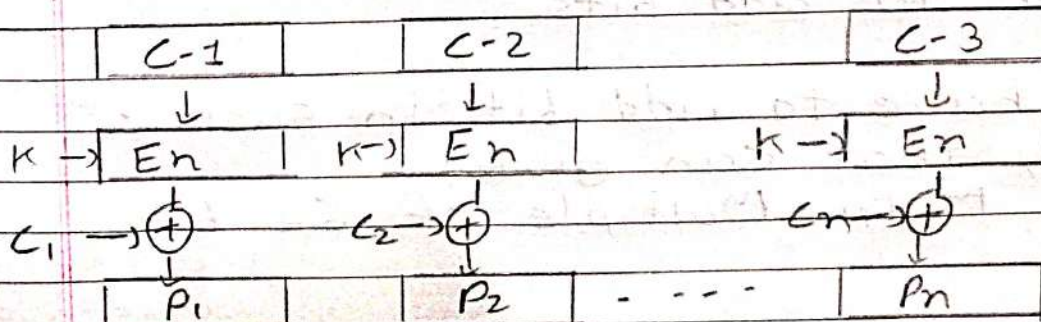 C-1 C-2 C-3
↓ ↓ ↓
K → En K → En K → En
C₁ → ⊕ C₂ → ⊕ Cn → ⊕
P₁ P₂ - - - - Pn